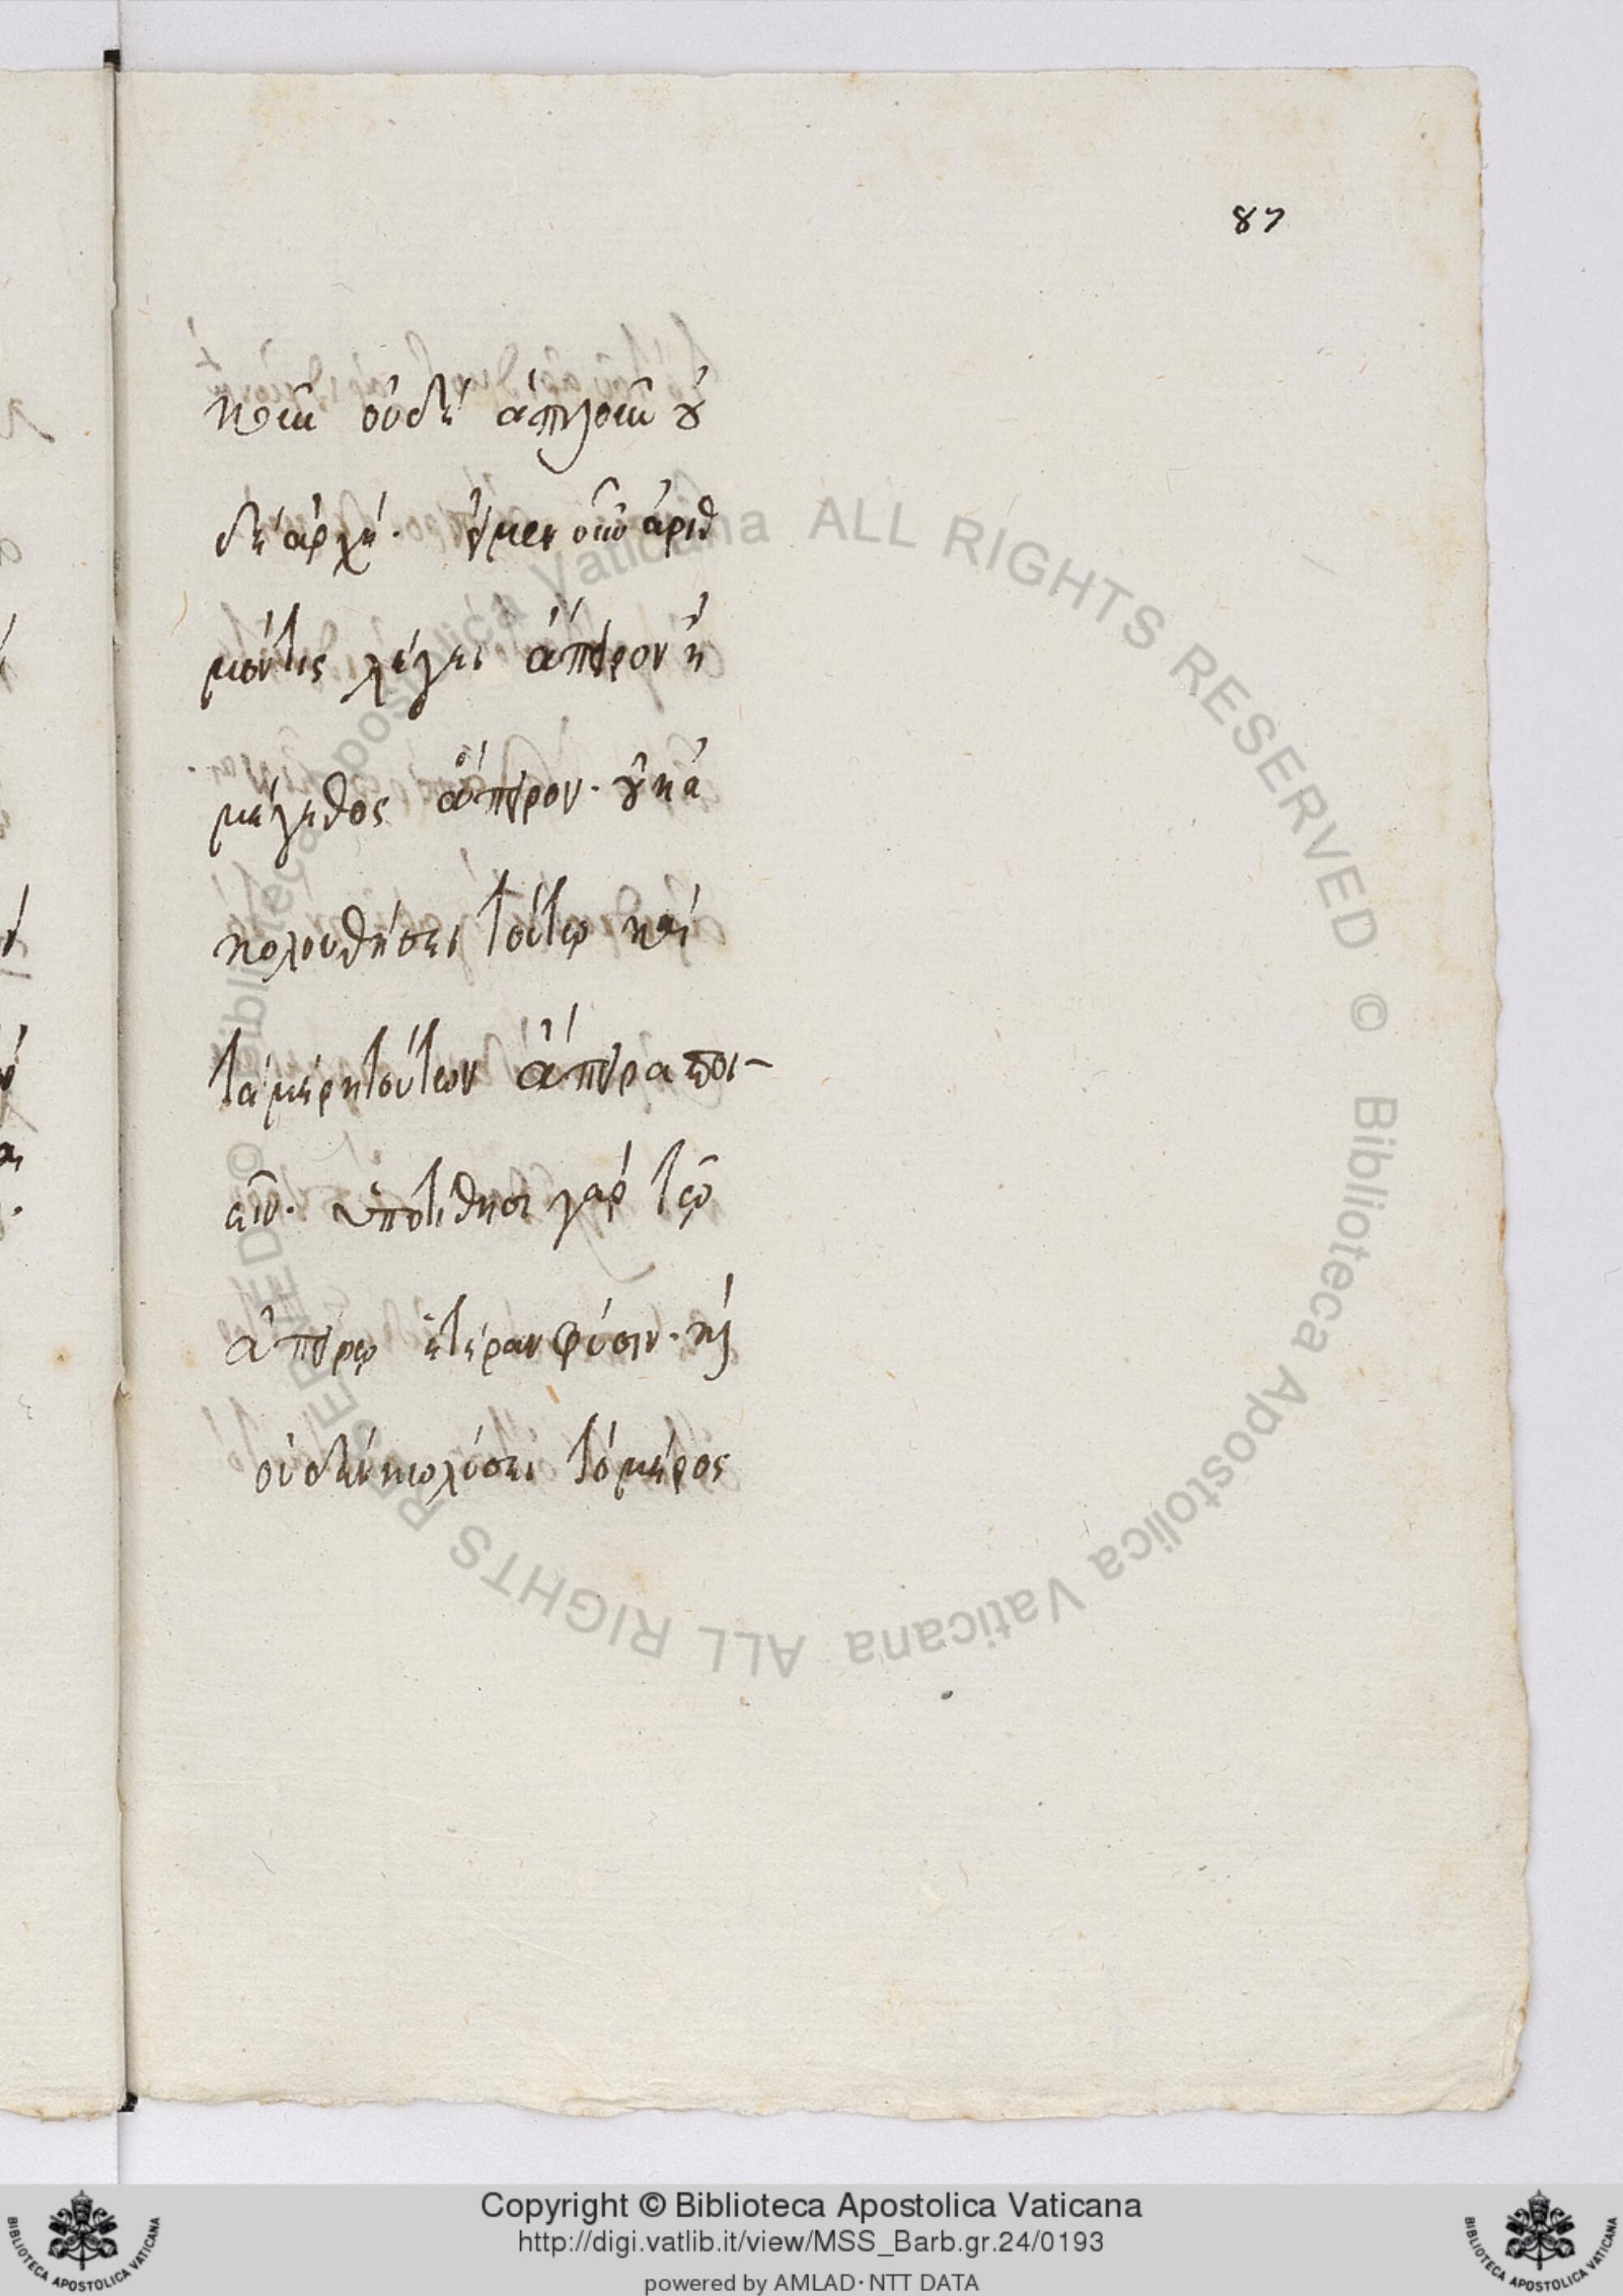 87
κεῖν οὐδὲ ἁπλοῦν ου
δὲ ἀρχή. εἰ μεν οὖν ἀριθ
μόν τις λέγει ἄπειρον ἢ
μέγεθος ἄπειρον. οὐκ ἀ
κολουθήσει τούτω καὶ
τὰ μέρη τούτων ἄπειρα ποι-
εῖν. ὑποτίθησι γὰρ τῶ
ἀπείρω ἑτέραν φύσιν. καὶ
οὐδὲν κωλύσει τὸ μέρος
Biblioteca Apostolica Vaticana ALL RIGHTS RESERVED ©
Biblioteca Apostolica Vaticana ALL RIGHTS RESERVED ©
Copyright © Biblioteca Apostolica Vaticana
http://digi.vatlib.it/view/MSS_Barb.gr.24/0193
powered by AMLAD·NTT DATA
BIBLIOTECA APOSTOLICA VATICANA
BIBLIOTECA APOSTOLICA VATICANA